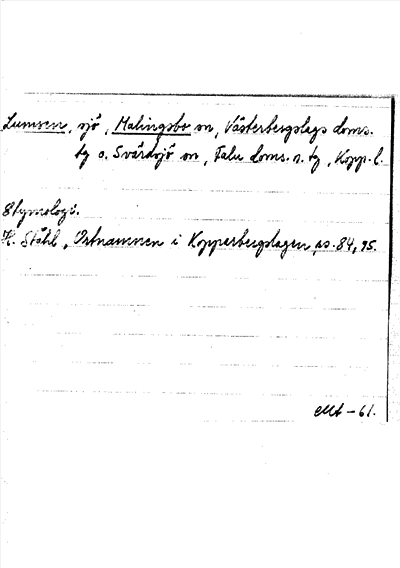 Lumsen, sjö, Malingsbo sn, Västerbergslags doms.
tg o. Svärdsjö sn, Falu doms. n. tg, Kopp. l.
Etymologi.
H. Ståhl, Ortnamnen i Kopparbergslagen, s. 84, 95.
-61.